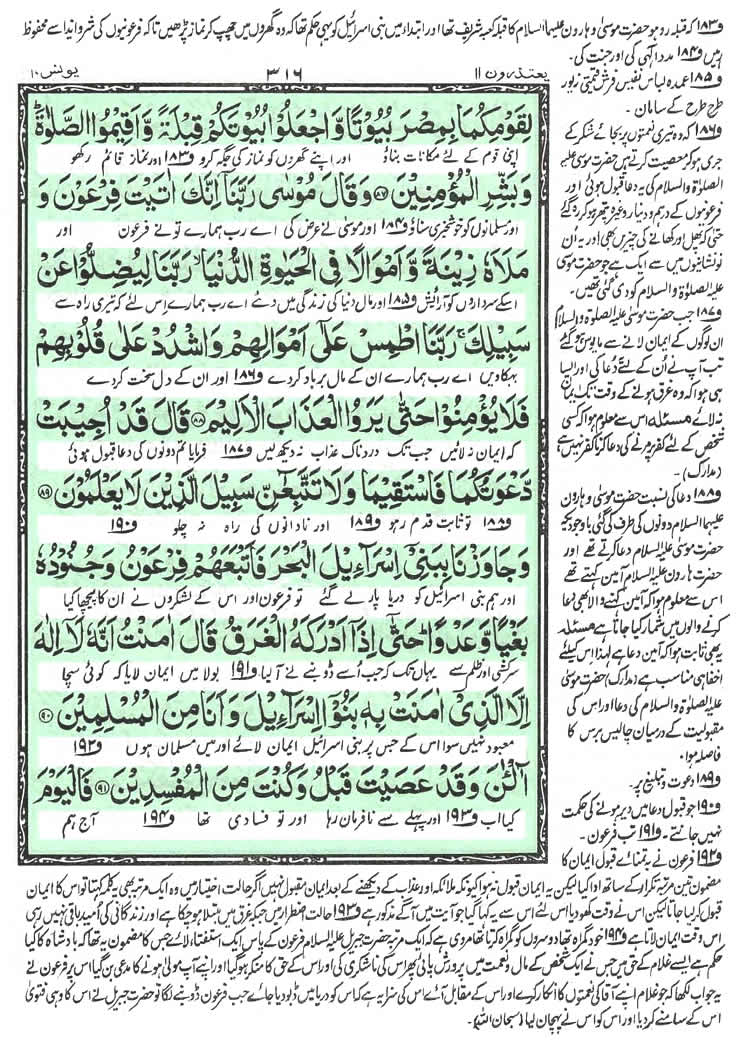 و۱۸۳ کہ قبلہ رو ہو حضرت موسیٰ و ہارون علیہما السلام کا قبلہ کعبہ شریف تھا اور ابتداء میں بنی اسرائیل کو یہی حکم تھا کہ وہ گھروں میں چھپ کر نماز پڑھیں تاکہ فرعونیوں کی شر و ایذا سے محفوظ
رہیں و۱۸۴ مدد الٰہی کی اور جنت کی۔
یونس ۱۰
۳۱۶
یعتذرون ۱۱
لِقَوْمِكُمَا بِمِصْرَ بُيُوْتًا وَّاجْعَلُوْا بُيُوْتَكُمْ قِبْلَةً وَّاَقِيْمُوا الصَّلٰوةَ ؕ
اپنی قوم کے لئے مکانات بناؤ اور اپنے گھروں کو نماز کی جگہ کرو و۱۸۳ اور نماز قائم رکھو
وَبَشِّرِ الْمُؤْمِنِيْنَ ﴿۸۷﴾ وَقَالَ مُوْسٰى رَبَّنَاۤ اِنَّكَ اٰتَيْتَ فِرْعَوْنَ وَ
اور مسلمانوں کو خوشخبری سناؤ و۱۸۴ اور موسیٰ نے عرض کی اے رب ہمارے تو نے فرعون اور
مَلَاَهٗ زِيْنَةً وَّاَمْوَالًا فِى الْحَيٰوةِ الدُّنْيَا ۙ رَبَّنَا لِيُضِلُّوْا عَنْ
اسکے سرداروں کو آرائش و۱۸۵ اور مال دنیا کی زندگی میں دئے اے رب ہمارے اس لئے کہ تیری راہ سے
سَبِيْلِكَ ۚ رَبَّنَا اطْمِسْ عَلٰۤى اَمْوَالِهِمْ وَاشْدُدْ عَلٰى قُلُوْبِهِمْ
بہکادیں اے رب ہمارے ان کے مال برباد کردے و۱۸۶ اور ان کے دل سخت کردے
فَلَا يُؤْمِنُوْا حَتّٰى يَرَوُا الْعَذَابَ الْاَلِيْمَ ﴿۸۸﴾ قَالَ قَدْ اُجِيْبَتْ
کہ ایمان نہ لائیں جب تک دردناک عذاب نہ دیکھ لیں و۱۸۷ فرمایا تم دونوں کی دعا قبول ہوئی
دَّعْوَتُكُمَا فَاسْتَقِيْمَا وَلَا تَتَّبِعٰٓنِّ سَبِيْلَ الَّذِيْنَ لَا يَعْلَمُوْنَ ﴿۸۹﴾
و۱۸۸ تو ثابت قدم رہو و۱۸۹ اور نادانوں کی راہ نہ چلو و۱۹۰
وَجَاوَزْنَا بِبَنِىْۤ اِسْرَآءِيْلَ الْبَحْرَ فَاَتْبَعَهُمْ فِرْعَوْنُ وَجُنُوْدُهٗ
اور ہم بنی اسرائیل کو دریا پار لے گئے تو فرعون اور اس کے لشکروں نے ان کا پیچھا کیا
بَغْيًا وَّعَدْوًا ؕ حَتّٰۤى اِذَاۤ اَدْرَكَهُ الْغَرَقُ قَالَ اٰمَنْتُ اَنَّهٗ لَاۤ اِلٰهَ
سرکشی اور ظلم سے یہاں تک کہ جب اسے ڈوبنے نے آلیا و۱۹۱ بولا میں ایمان لایا کہ کوئی سچا
اِلَّا الَّذِىْۤ اٰمَنَتْ بِهٖ بَنُوْۤا اِسْرَآءِيْلَ وَاَنَا مِنَ الْمُسْلِمِيْنَ ﴿۹۰﴾
معبود نہیں سوا اس کے جس پر بنی اسرائیل ایمان لائے اور میں مسلمان ہوں و۱۹۲
آٰلْـٰٔنَ وَقَدْ عَصَيْتَ قَبْلُ وَكُنْتَ مِنَ الْمُفْسِدِيْنَ ﴿۹۱﴾ فَالْيَوْمَ
کیا اب و۱۹۳ اور پہلے سے نافرمان رہا اور تو فسادی تھا و۱۹۴ آج ہم
و۱۸۵ عمدہ لباس نفیس فرش قیمتی زیور
طرح طرح کے سامان۔
و۱۸۶ کہ وہ تیری نعمتوں پر بجائے شکر کے
جری ہو کر معصیت کرتے ہیں حضرت موسیٰ علیہ
الصلوٰۃ والسلام کی یہ دعا قبول ہوئی اور
فرعونیوں کے درہم و دینار وغیرہ پتھر ہو کر رہ گئے
حتیٰ کہ پھل اور کھانے کی چیزیں بھی اور یہ اُن
نو نشانیوں میں سے ایک ہے جو حضرت موسیٰ
علیہ الصلوٰۃ والسلام کو دی گئی تھیں۔
و۱۸۷ جب حضرت موسیٰ علیہ الصلوٰۃ والسلام
ان لوگوں کے ایمان لانے سے مایوس ہو گئے
تب آپ نے اُن کے لئے یہ دعا کی اور ایسا
ہی ہوا کہ وہ غرق ہونے کے وقت تک ایمان
نہ لائے مسئلہ اس سے معلوم ہوا کہ کسی
شخص کے لئے کفر پر مرنے کی دعا کرنا کفر نہیں ہے
(مدارک)۔
و۱۸۸ دعا کی نسبت حضرت موسیٰ و ہارون
علیہما السلام دونوں کی طرف کی گئی باوجودیکہ
حضرت موسیٰ علیہ السلام دعا کرتے تھے اور
حضرت ہارون علیہ السلام آمین کہتے تھے
اس سے معلوم ہوا کہ آمین کہنے والا بھی دعا
کرنے والوں میں شمار کیا جاتا ہے مسئلہ
یہ بھی ثابت ہوا کہ آمین دعا ہے لہٰذا اس کیلئے
اخفا ہی مناسب ہے (مدارک) حضرت موسیٰ
علیہ الصلوٰۃ والسلام کی دعا اور اس کی
مقبولیت کے درمیان چالیس برس کا
فاصلہ ہوا۔
و۱۸۹ دعوت و تبلیغ پر۔
و۱۹۰ جو قبول دعا میں دیر ہونے کی حکمت
نہیں جانتے۔ و۱۹۱ تب فرعون۔
و۱۹۲ فرعون نے بہ تمنائے قبول ایمان کا
مضمون تین مرتبہ تکرار کے ساتھ ادا کیا لیکن یہ ایمان قبول نہ ہوا کیونکہ ملائکہ اور عذاب کے دیکھنے کے بعد ایمان مقبول نہیں اگر حالت اختیار میں وہ ایک مرتبہ بھی یہ کلمہ کہتا تو اس کا ایمان
قبول کر لیا جاتا لیکن اس نے وقت کھو دیا اس لئے اس سے یہ کہا گیا جو آیت میں آگے مذکور ہے و۱۹۳ حالت اضطرار میں جبکہ غرق میں مبتلا ہو چکا ہے اور زندگانی کی اُمید باقی نہیں رہی
اس وقت ایمان لاتا ہے و۱۹۴ خود گمراہ تھا دوسروں کو گمراہ کرتا تھا مروی ہے کہ ایک مرتبہ حضرت جبریل علیہ السلام فرعون کے پاس ایک استفتاء لائے جس کا مضمون یہ تھا کہ بادشاہ کا کیا
حکم ہے ایسے غلام کے حق میں جس نے ایک شخص کے مال و نعمت میں پرورش پائی پھر اس کی ناشکری کی اور اس کے حق کا منکر ہو گیا اور اپنے آپ مولیٰ ہونے کا مدعی بن گیا اس پر فرعون نے
یہ جواب لکھا کہ جو غلام اپنے آقا کی نعمتوں کا انکار کرے اور اس کے مقابل آئے اس کی سزا یہ ہے کہ اس کو دریا میں ڈبو دیا جائے جب فرعون ڈوبنے لگا تو حضرت جبریل نے اس کا وہی فتویٰ
اس کے سامنے کر دیا اور اس کو اس نے پہچان لیا (سبحان اللہ)۔